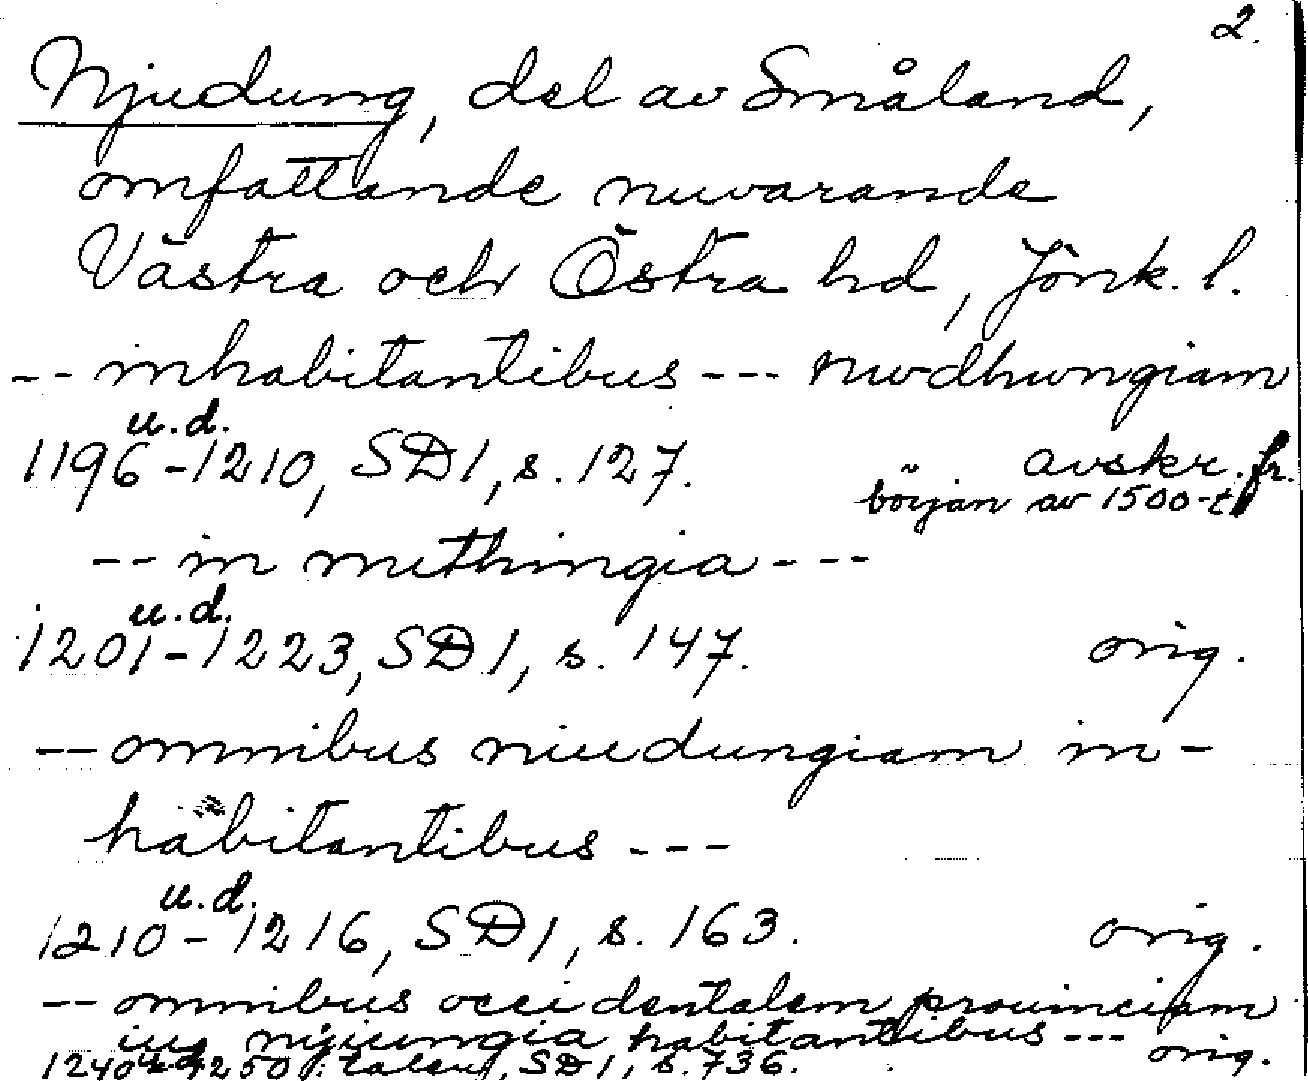 2.
Njudung, del av Småland,
omfattande nuvarande
Västra och Östra hd, Jönk. l.
-- inhabitantibus --- nwdhwngiam
u.d.
1196-1210, SD 1, s. 127. avskr. fr.
början av 1500-t
-- in niethingia ---
u.d.
1201-1223, SD 1, s. 147. orig.
-- omnibus niudungiam in-
habitantibus ---
u.d.
1210-1216, SD 1, s. 163. orig.
-- omnibus occidentalem prouinciam
habitantibus --- orig.
1240 1250 talen, SD 1, s. 736.